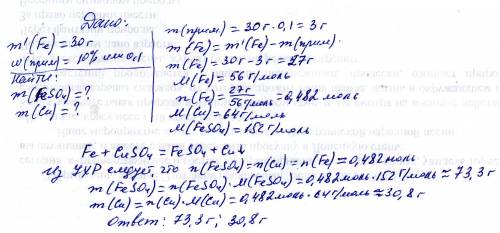 Дано:
m'(Fe) = 30г
w(прим) = 10% или 0,1
Найти:
m(FeSO₄) = ?
m(Cu) = ?
m(прим) = 30г · 0,1 = 3г
m(Fe) = m'(Fe) - m(прим).
m(Fe) = 30г - 3г = 27г
M(Fe) = 56 г/моль
n(Fe) = 27г / 56г/моль = 0,482 моль
M(Cu) = 64 г/моль
M(FeSO₄) = 152 г/моль
Fe + CuSO₄ = FeSO₄ + Cu↓
Из УХР следует, что n(FeSO₄) = n(Cu) = n(Fe) = 0,482 моль
m(FeSO₄) = n(FeSO₄) · M(FeSO₄) = 0,482 моль · 152 г/моль ≈ 73,3 г
m(Cu) = n(Cu) · M(Cu) = 0,482 моль · 64 г/моль ≈ 30,8 г
Ответ: 73,3 г; 30,8 г